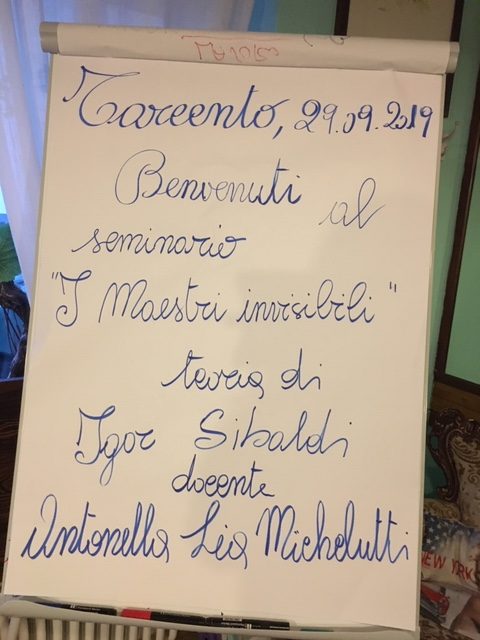 Tarcento, 29.09.2019
Benvenuti al
seminario
"I Maestri invisibili"
teoria di
Igor Sibaldi
docente
Antonella Lia Michelutti
NEW YORK